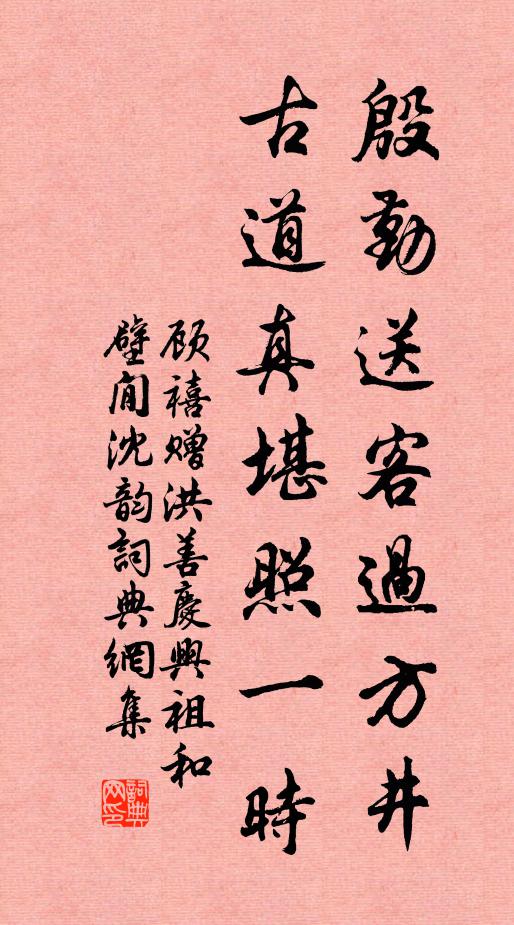 殷勤送客過方井
古道真堪照一時
顾禧赠洪善慶興祖和
壁间沈韵詞典網集
詞典网印